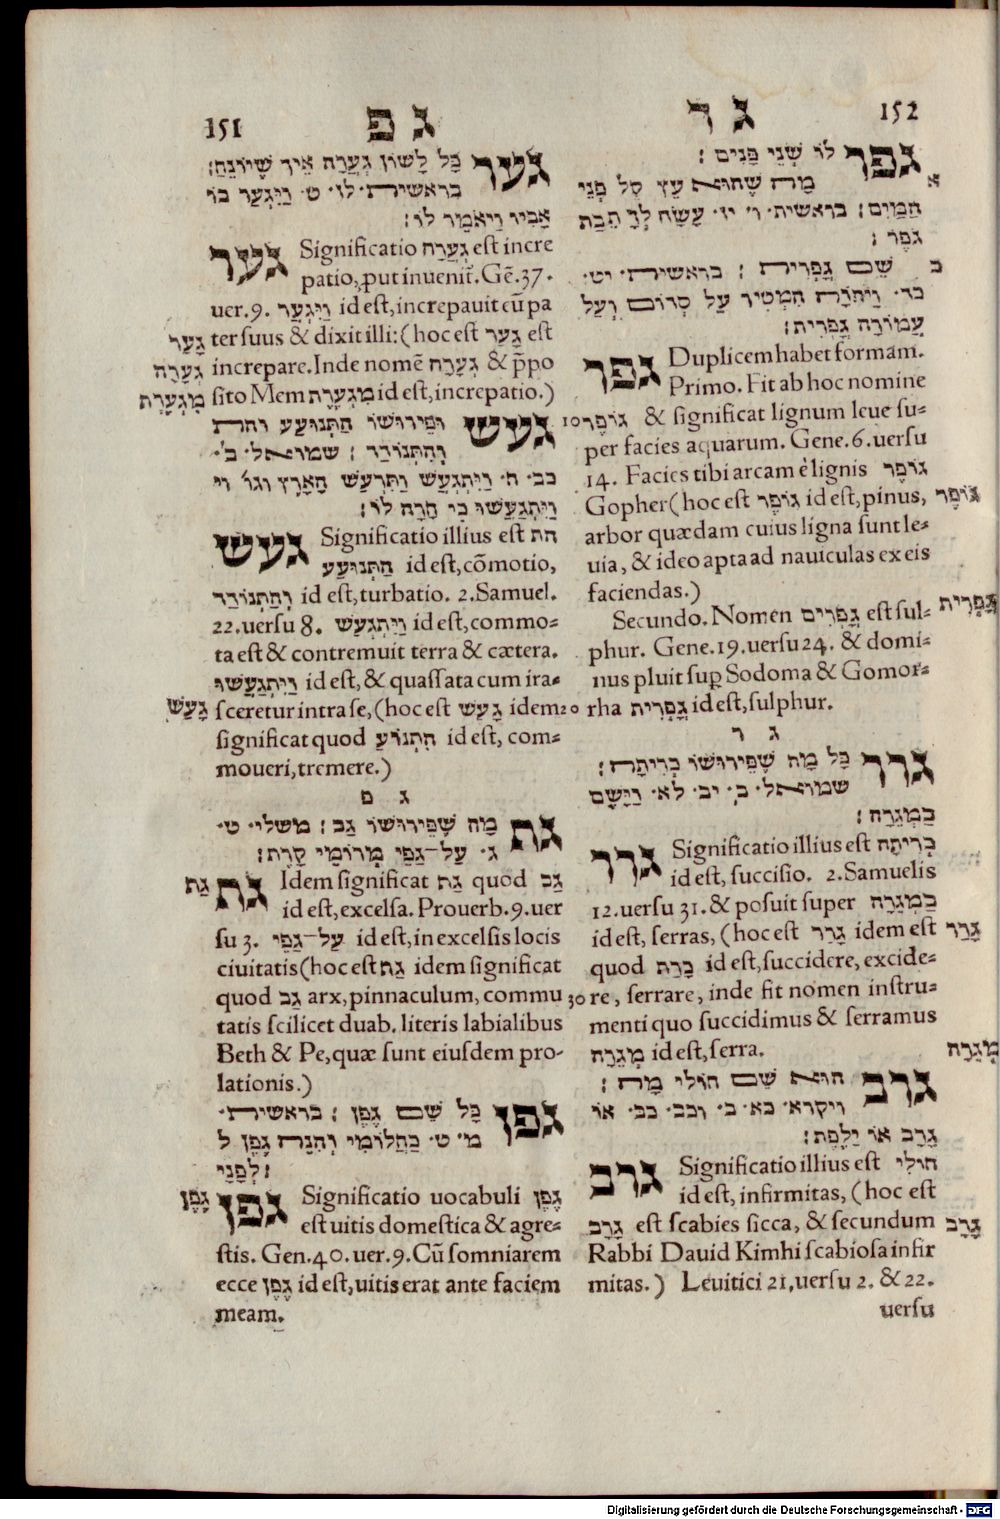 151 ג פ
גער כָּל לָשׁוֹן גְּעָרָה אֵיךְ שֶׁיּוּנַּח׃
בראשית· לז· ט· וַיִּגְעַר בּוֹ
אָבִיו וַיֹּאמֶר לוֹ׃
גער Significatio גְּעָרָה est incre
patio, ꝓut inuenit̃. Gẽ.37.
uer.9. וַיִּגְעַר id est, increpauit eũ pa
גָּעַר ter suus & dixit illi: (hoc est גָּעַר est
גְּעָרָה increpare. Inde nomẽ גְּעָרָה & p̃po
מִגְעֶרֶת sito Mem מִגְעֶרֶת id est, increpatio.)
געש וּפֵירוּשׁוֹ הַתְּנוּעַע וחת
וְהִתְנוֹדַד ׃ שמואל· ב׳·
כב· ח· וַיִּתְגְּעַשׁ וַתִּרְעַשׁ הָאָרֶץ וגו׳ וי
וַיִּתְגָּעֲשׁוּ כִּי חָרָה לוֹ׃
געש Significatio illius est הת
הַתְּנוּעַע id est, cõmotio,
וְהִתְנוֹדַד id est, turbatio. 2. Samuel.
22. uersu 8. וַיִּתְגְּעַשׁ id est, commo-
ta est & contremuit terra & cætera.
וַיִּתְגָּעֲשׁוּ id est, & quassata cum ira-
גָּעַשׁ sceretur intra se, (hoc est גָּעַשׁ idem
significat quod הִתְנוֹעַ id est, com-
moueri, tremere.)
ג פ
גף מַה שֶּׁפֵּירוּשׁוֹ גַּב ׃ משלי· ט·
ג· עַל־גַּפֵּי מְרוֹמֵי קָרֶת׃
גַּף גף Idem significat גַּף quod גַּב
id est, excelsa. Prouerb.9. uer
su 3. עַל־גַּפֵּי id est, in excelsis locis
ciuitatis (hoc est גַּף idem significat
quod גַּב arx, pinnaculum, commu
tatis scilicet duab. literis labialibus
Beth & Pe, quæ sunt eiusdem pro-
lationis.)
גפן כָּל שֵׁם גֶּפֶן ׃ בראשית·
מ· ט· בַּחֲלוֹמִי וְהִנֵּה גֶפֶן ל
לְפָנָי׃
גֶּפֶן גפן Significatio uocabuli גֶּפֶן
est uitis domestica & agre-
stis. Gen.40. uer.9. Cũ somniarem
ecce גֶּפֶן id est, uitis erat ante faciem
meam.
ג ר 152
גפר לוֹ שְׁנֵי פָּנִים ׃
א מַה שֶּׁהוּא עֵץ קַל פְּנֵי
הַמַּיִם׃ בראשית· ו· יד· עֲשֵׂה לְךָ תֵּבַת
גֹּפֶר ׃
ב שֵׁם גָּפְרִית ׃ בראשית· יט·
כד· וַיהוָה הִמְטִיר עַל סְדוֹם וְעַל
עֲמוֹרָה גָּפְרִית׃
גפר Duplicem habet formam.
Primo. Fit ab hoc nomine
10 גּוֹפֶר & significat lignum leue su-
per facies aquarum. Gene.6. uersu
14. Facies tibi arcam è lignis גּוֹפֶר
Gopher (hoc est גּוֹפֶר id est, pinus, גּוֹפֶר
arbor quædam cuius ligna sunt le-
uia, & ideo apta ad nauiculas ex eis
faciendas.)
Secundo. Nomen גָּפְרִים est sul- גָּפְרִית
phur. Gene.19. uersu 24. & domi-
nus pluit suꝑ Sodoma & Gomor-
20 rha גָּפְרִית id est, sulphur.
ג ר
גרר כָּל מַה שֶּׁפֵּירוּשׁוֹ כְּרִיתָה׃
שמואל· ב· יב· לא· וַיָּשֶׂם
בַּמְּגֵרָה׃
גרר Significatio illius est כְּרִיתָה
id est, succisio. 2. Samuelis
12. uersu 31. & posuit super בַּמְּגֵרָה
id est, serras, (hoc est גָּרַר idem est גָּרַר
quod כָּרַת id est, succidere, excide-
30 re, serrare, inde fit nomen instru-
menti quo succidimus & serramus
מְגֵרָה id est, serra. מְגֵרָה
גרב הוּא שֵׁם חוֹלִי מָה ׃
ויקרא· כא· ב· וכב· כב· אוֹ
גָרָב אוֹ יַלֶּפֶת׃
גרב Significatio illius est חוֹלִי
id est, infirmitas, (hoc est
גָּרָב est scabies sicca, & secundum גָּרָב
Rabbi Dauid Kimhi scabiosa infir
mitas.) Leuitici 21, uersu 2. & 22.
uersu
Digitalisierung gefördert durch die Deutsche Forschungsgemeinschaft - DFG